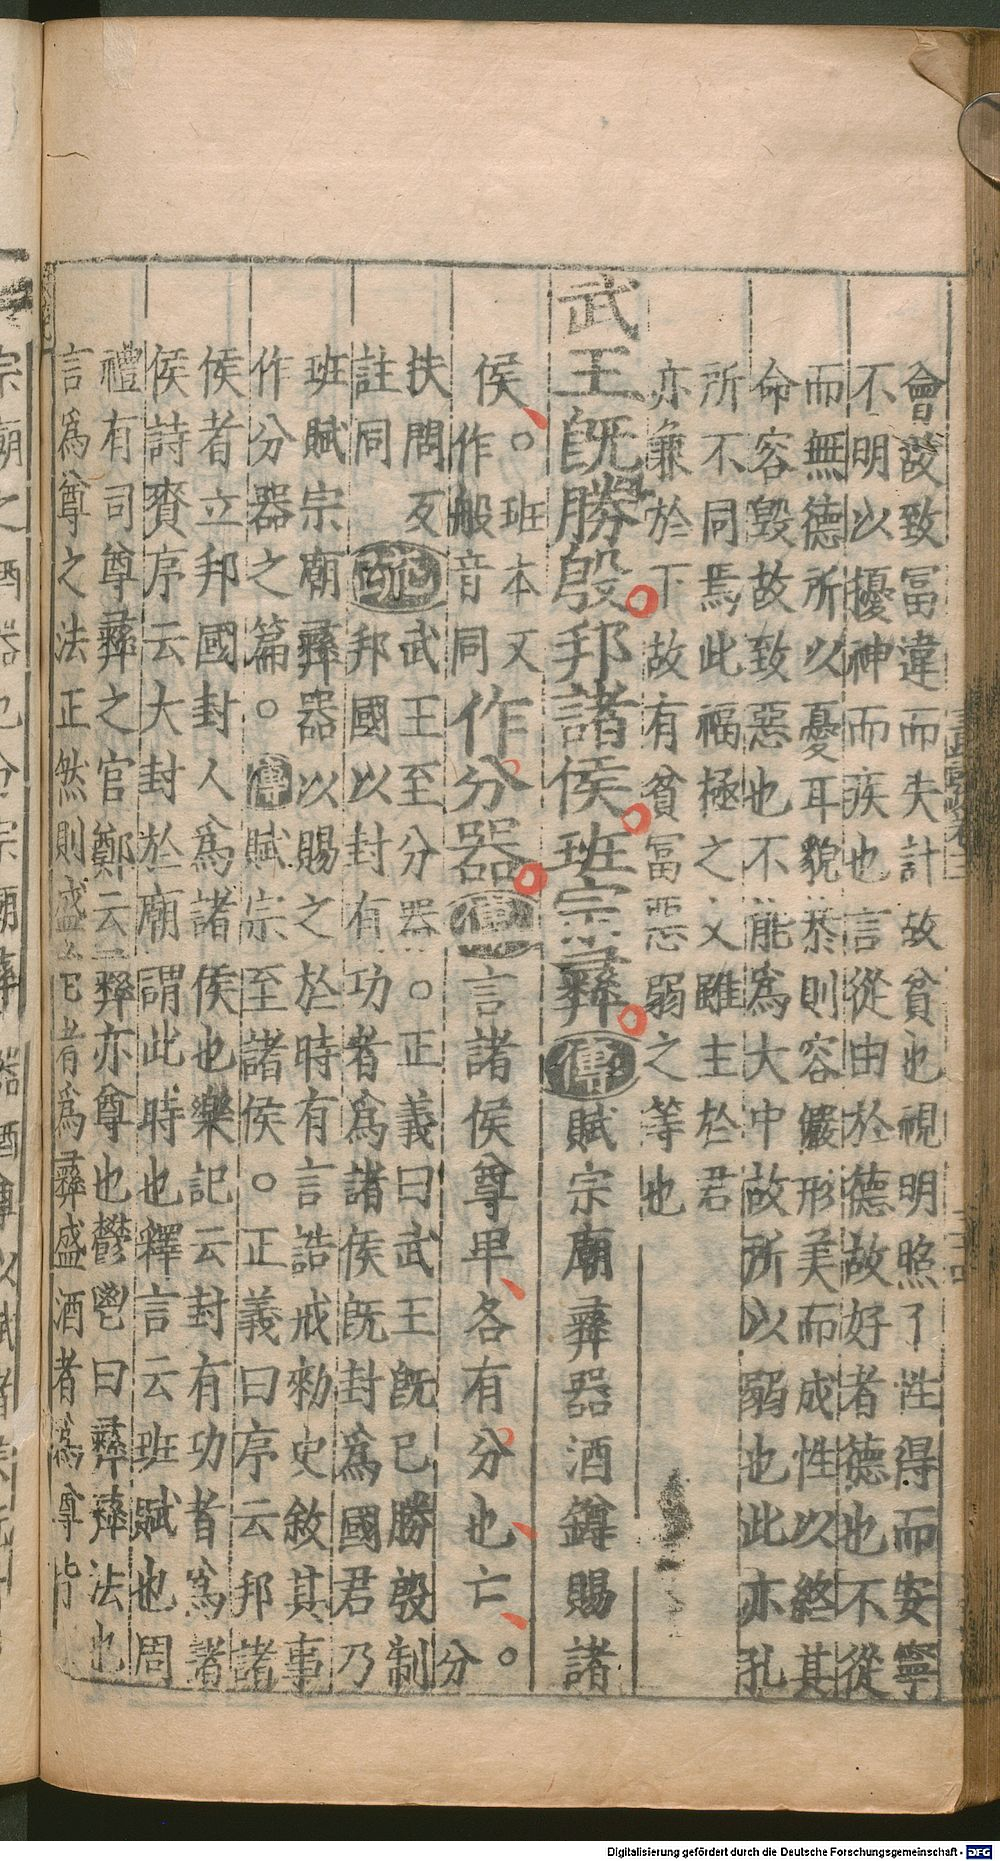 會故致冨違而失計故貧也視明照了性得而安寧
不明以擾神而疾也言從由於德故好者德也不從
而無德所以憂耳貌恭則容儼形美而成性以終其
命容毀故致惡也不能爲大中故所以弱也此亦孔
所不同焉此福極之文雖主於君
亦兼於下故有貧冨惡弱之等也
武王旣勝殷邦諸侯班宗彝傳賦宗廟彝器酒罇賜諸
侯。班本又作般音同作分器傳言諸侯尊卑各有分也亡。分
扶問反
註同疏武王至分器。正義曰武王旣已勝殷制
邦國以封有功者爲諸侯旣封爲國君乃
班賦宗廟彝器以賜之於時有言誥戒勑史敘其事
作分器之篇。傳賦宗至諸侯。正義曰序云邦諸
侯者立邦國封人爲諸侯也樂記云封有功者爲諸
侯詩賚序云大封於廟謂此時也釋言云班賦也周
禮有司尊彝之官鄭云彝亦尊也鬱鬯曰彝彝法也
言爲尊之法正然則盛鬯者爲彝盛酒者爲尊皆
Digitalisierung gefördert durch die Deutsche Forschungsgemeinschaft - DFG